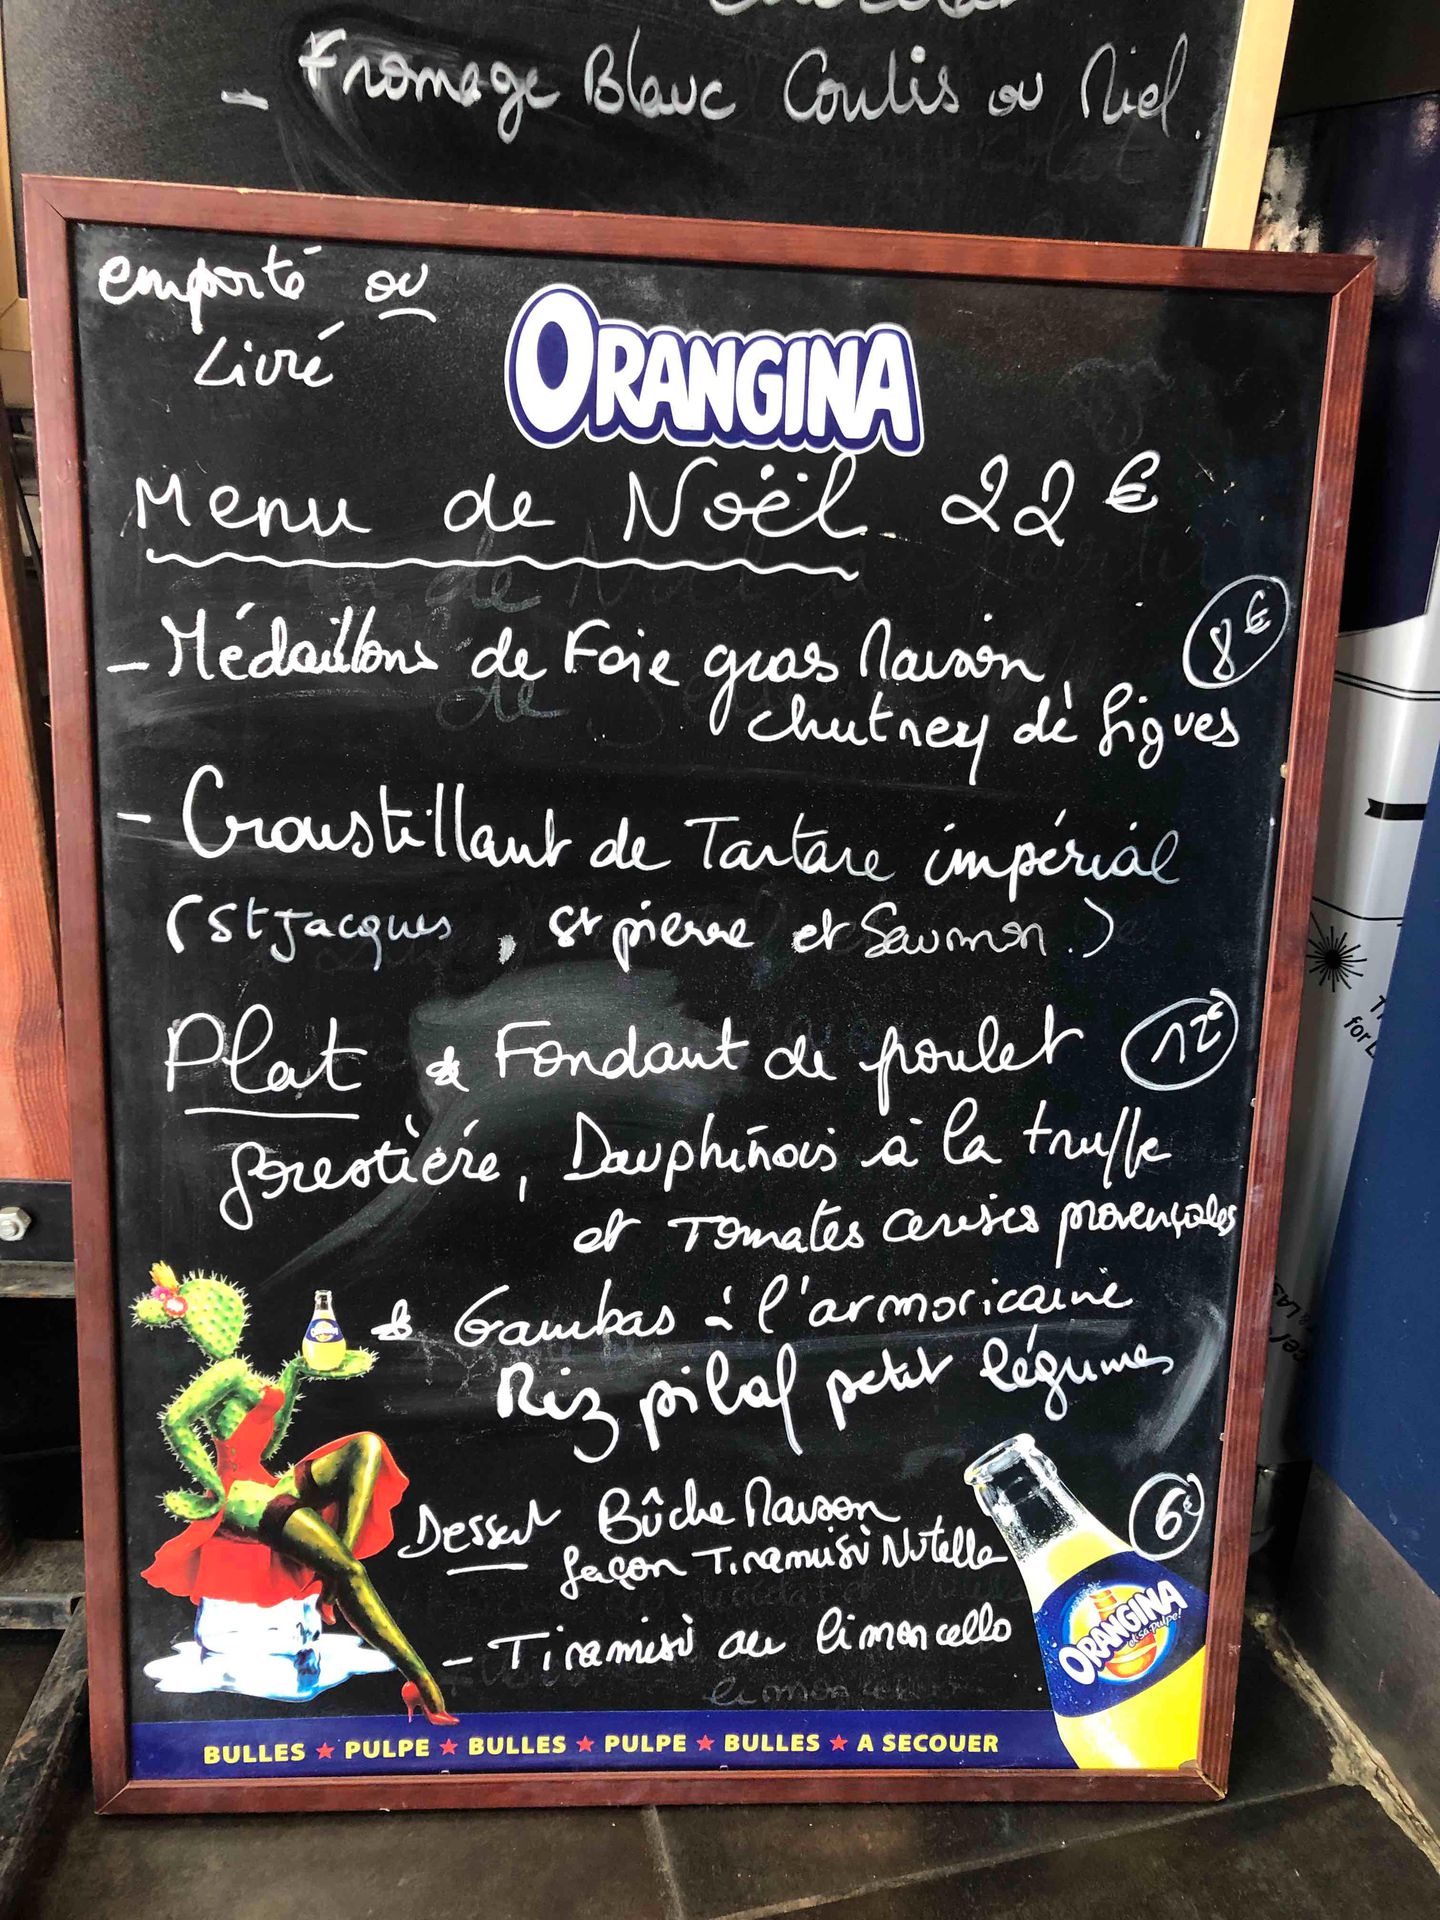 - Fromage Blanc Coulis ou Miel.
emporté ou
Livré
ORANGINA
Menu de Noël 22 €
- Médaillons de Foie gras Maison 8€
chutney de figues
- Croustillant de Tartare impérial
(St Jacques, St pierre et Saumon.)
Plat * Fondant de poulet 12€
forestière, Dauphinois à la truffe
et Tomates cerises provençales
* Gambas à l'armoricaine
Riz pilaf petit légumes
Dessert Bûche Maison 6€
façon Tiramisu Nutella
- Tiramisu au limoncello
ORANGINA
BULLES ★ PULPE ★ BULLES ★ PULPE ★ BULLES ★ A SECOUER